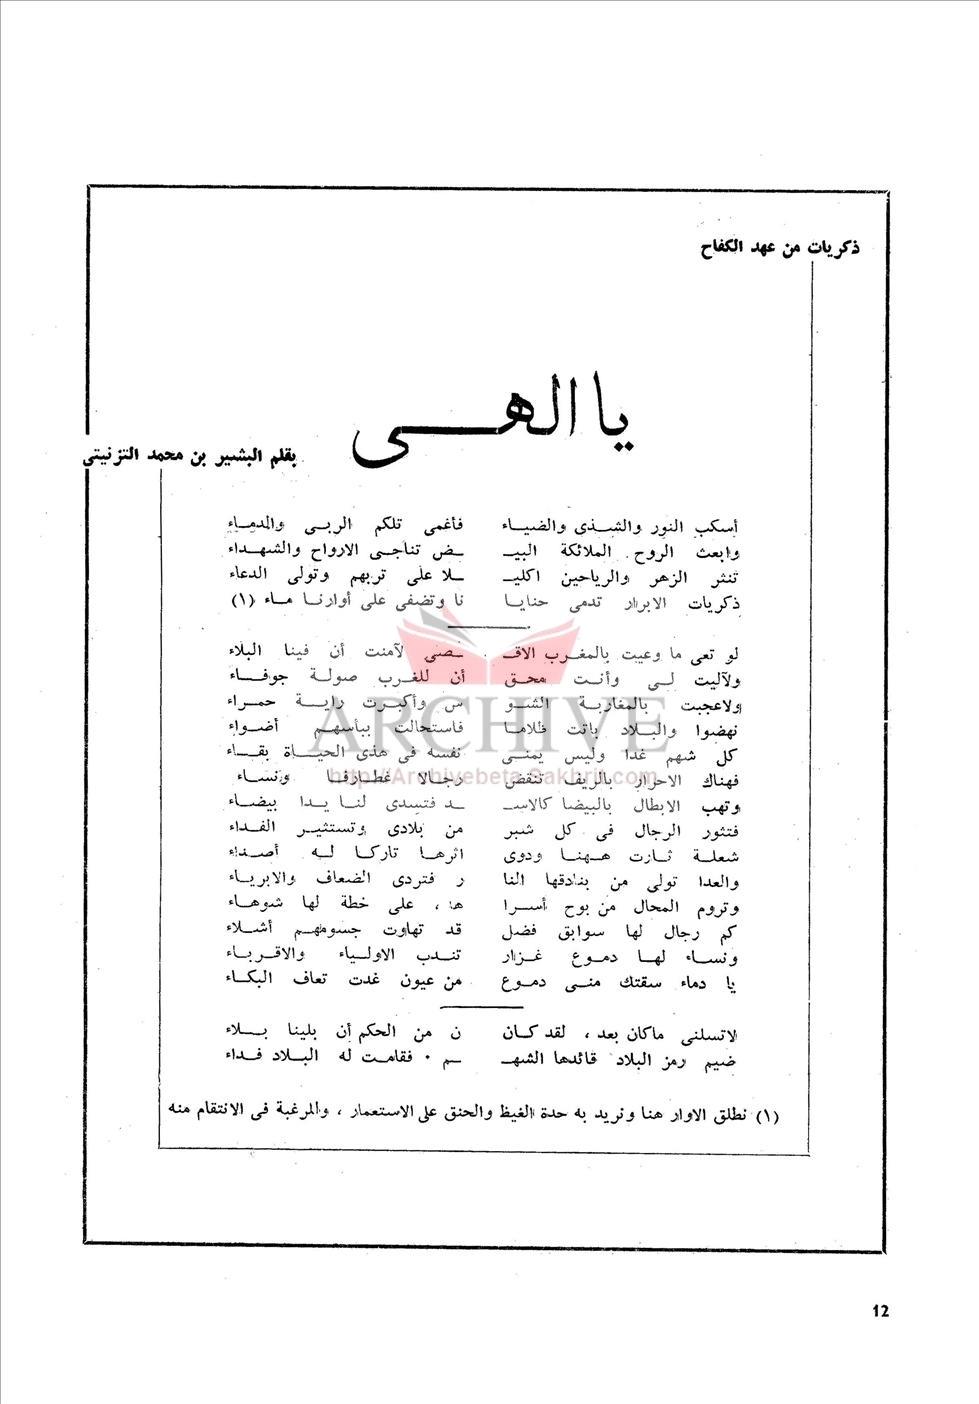 ذكريات من عهد الكفاح
يا الهـــي
بقلم البشير بن محمد التزنيتى
أسكب النور والشذى والضياء فأغمى تلكم الربى والدماء
وابعث الروح الملائكة البيـ ـض تناجى الارواح والشهداء
تنثر الزهر والرياحين اكليـ ـلا على تربهم وتولى الدعاء
ذكريات الابرار تدمى حنايا نا وتضفى على أوارنا ماء (١)
لو تعى ما وعيت بالمغرب الاقـ ـصى لآمنت أن فينا البلاء
ولآليت لى وأنت محق أن للغرب صولة جوفاء
ولاعجبت بالمغاربة الشو س وأكبرت راية حمراء
نهضوا والبلاد باتت ظلاما فاستحالت ببأسهم أضواء
كل شهم غدا وليس يمنى نفسه فى هذى الحياة بقاء
فهناك الاحرار بالريف تنقض رجالا غطارفا ونساء
وتهب الابطال بالبيضا كالاسـ ـد فتسدى لنا يدا بيضاء
فتثور الرجال فى كل شبر من بلادى وتستثير الفداء
شعلة ثارت ههنا ودوى اثرها تاركا له أصداء
والعدا تولى من بنادقها النا ر فتردى الضعاف والابرياء
وتروم المحال من بوح أسرا ها، على خطة لها شوهاء
كم رجال لها سوابق فضل قد تهاوت جسومهم أشلاء
ونساء لها دموع غزار تندب الاولياء والاقرباء
يا دماء سقتك منى دموع من عيون غدت تعاف البكاء
لاتسلنى ماكان بعد، لقد كان ن من الحكم أن بلينا بلاء
ضيم رمز البلاد قائدها الشهـ ـم ٠ فقامت له البلاد فداء
(١) نطلق الاوار هنا ونريد به حدة الغيظ والحنق على الاستعمار، والمرغبة فى الانتقام منه
ARCHIVE
http://Archivebeta.Sakhrit.com
12